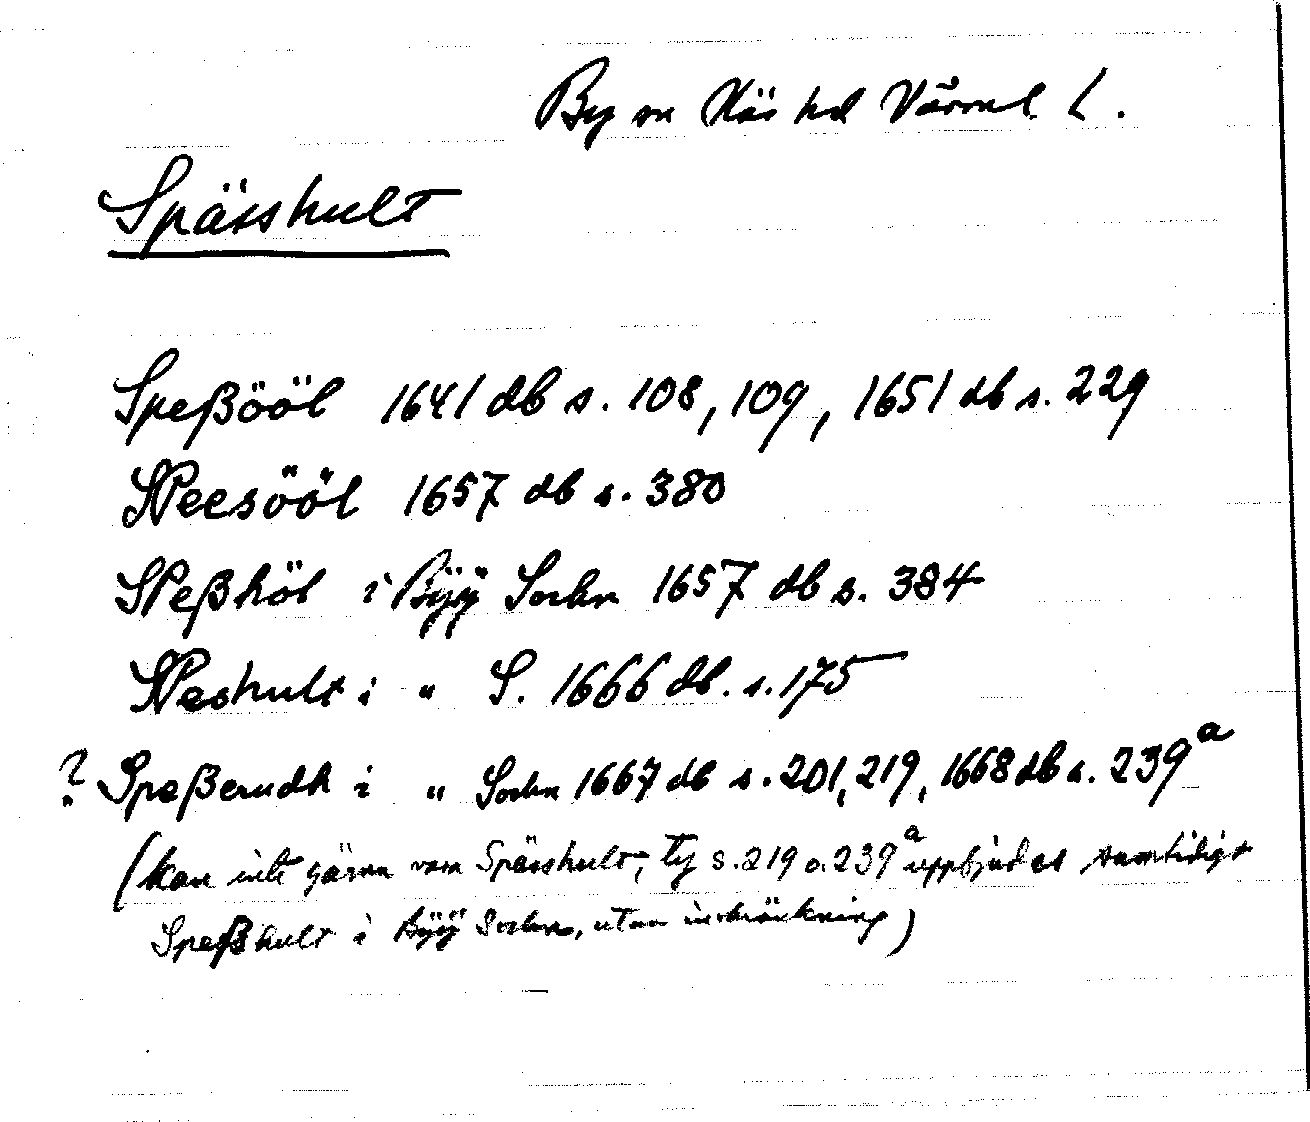 By sn Näs hd Värml L.
Spässhult
Speßööl 1641 db s. 108, 109, 1651 db s. 229
SPeesööl 1657 db s. 380
SPeßhöl i Bÿÿ Sochn 1657 db s. 384
SPeshult i " S. 1666 db. s. 175
? Speßerudh i " Sochn 1667 db s. 201, 219, 1668 db s. 239a
(kan inte gärna vara Spässhult, ty s. 219 o. 239a uppbjudes samtidigt
Speßhult i Bÿÿ Sochn, utan inskränkning)